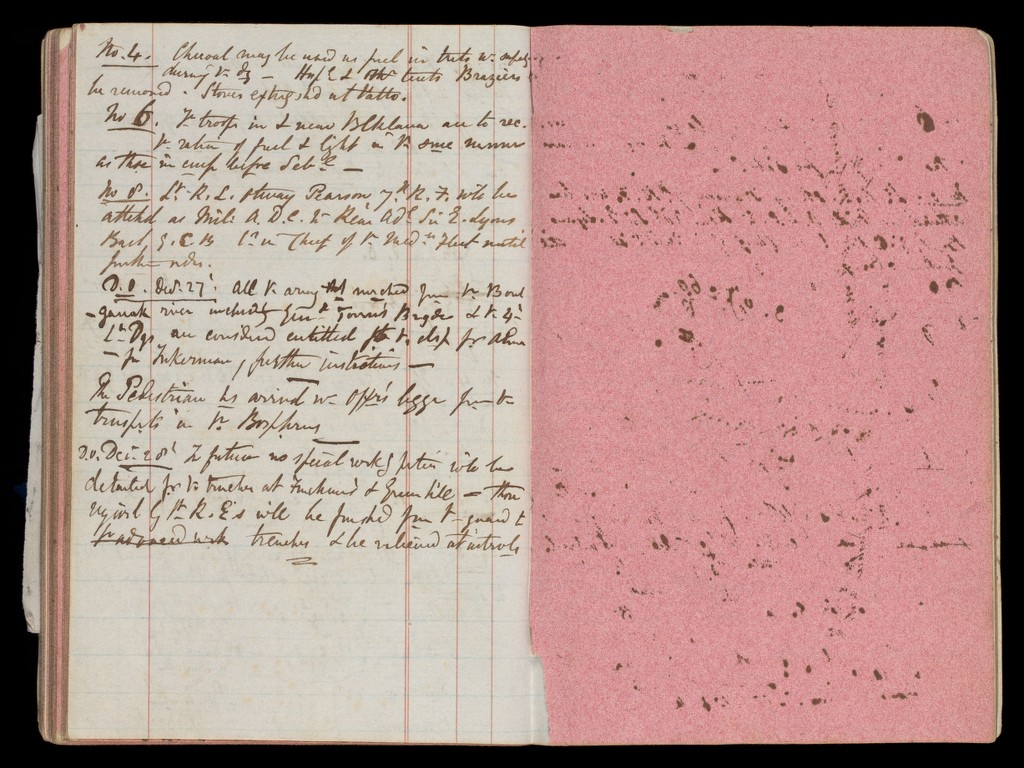 No. 4. Charcoal may be used as fuel in tents
during the day — & tents Braziers
be removed. Stoves extingshd at tattoo.
No 6. Ye troops in & near Blklava are to rec.
ye ration of fuel & light in ye same manner
as those in camp before Seb:l —
No 8. Lt. R. L. Otway Pearson 7th R. F. will be
attend as Mil: A. D. C. to Rear Adl Sir E. Lyons
Bart, G. C B in Chief of ye Medn Fleet until
further orders.
D.O. Decr 27: All ye army marched from ye Boul
-ganak river including Genl Torrens Brigde & ye 4th
Lt Dgs are considered entitled to ye clasp for Alma
— for Inkerman, further instructions —
The Pedestrian has arrived wh Offrs bggge from ye
transpts in ye Bosphorus
D.O. Decr 28: In future no special workg parties will be
detailed for ye trenches at Inkerman & Green hill — those
required by ye R. E's will be furnished from ye guard
trenches & be relieved at intervals